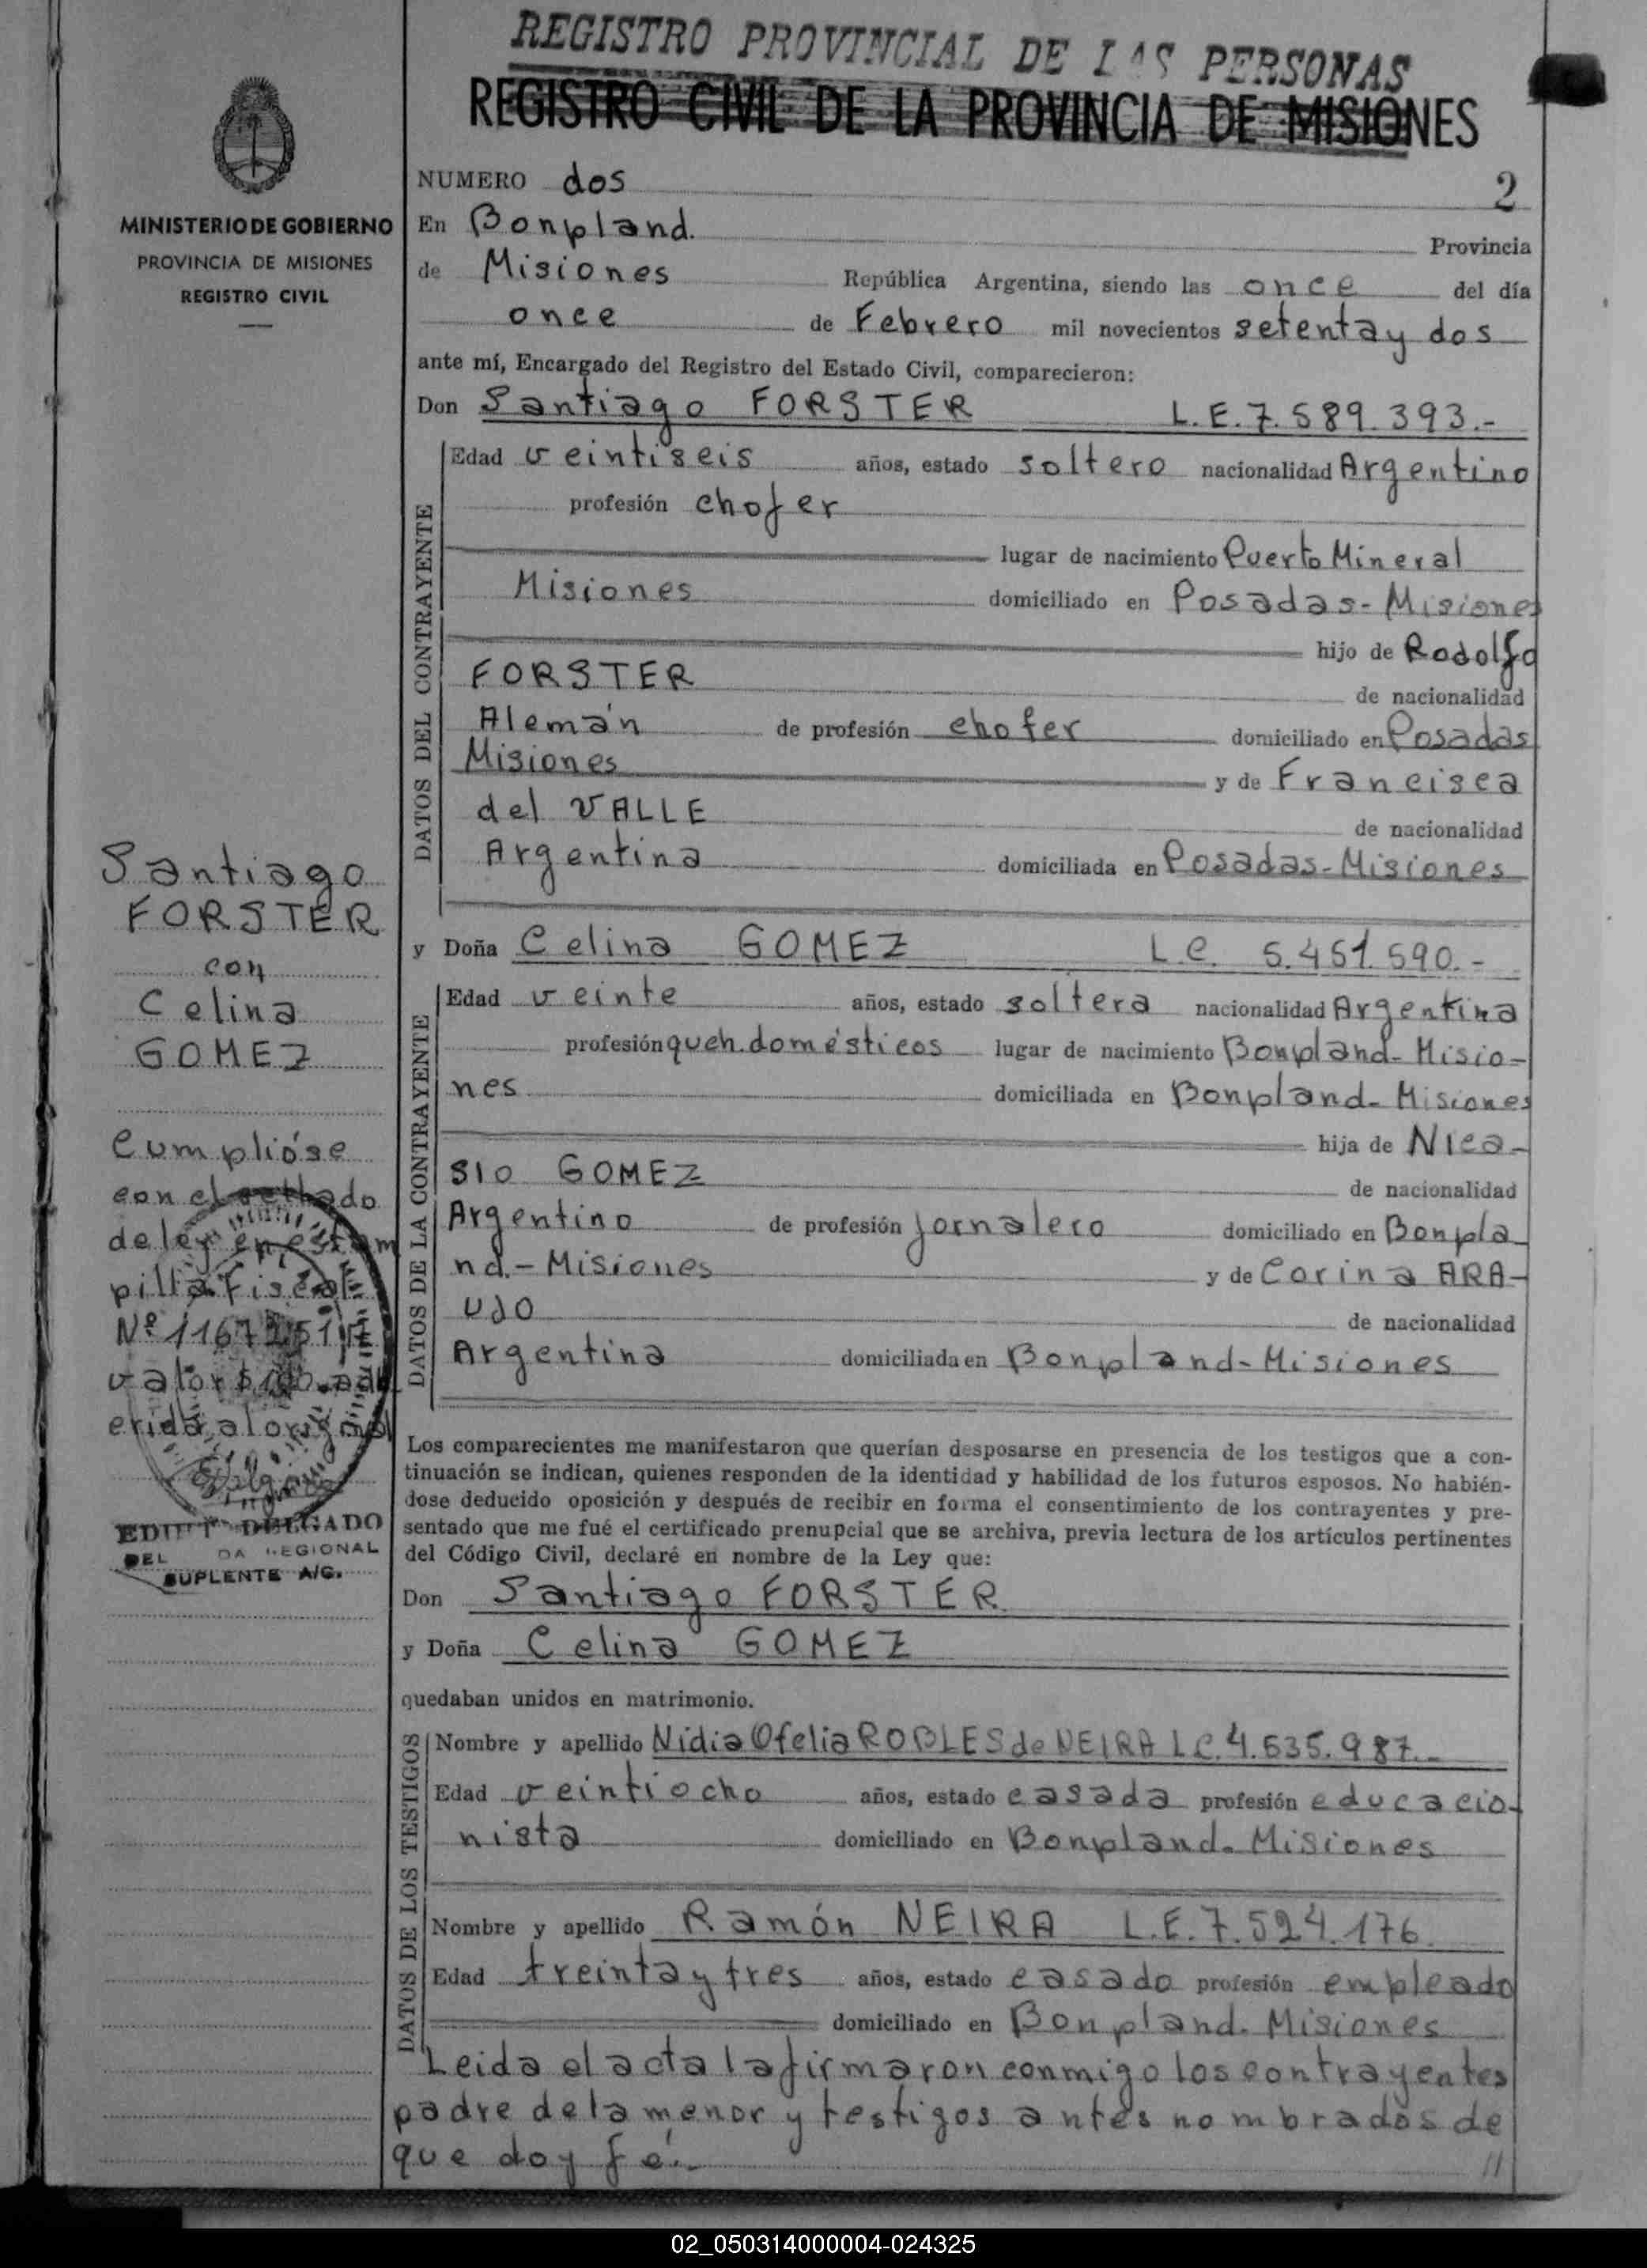 REGISTRO PROVINCIAL DE LAS PERSONAS
REGISTRO CIVIL DE LA PROVINCIA DE MISIONES
MINISTERIO DE GOBIERNO
PROVINCIA DE MISIONES
REGISTRO CIVIL
NUMERO dos 2
En Bonpland. Provincia
de Misiones República Argentina, siendo las once del día
once de Febrero mil novecientos setenta y dos
ante mí, Encargado del Registro del Estado Civil, comparecieron:
Don Santiago FORSTER L.E. 7.589.393.-
DATOS DEL CONTRAYENTE
Edad veintiseis años, estado soltero nacionalidad Argentino
profesión chofer
lugar de nacimiento Puerto Mineral
Misiones domiciliado en Posadas-Misiones
hijo de Rodolfo
FORSTER de nacionalidad
Alemán de profesión chofer domiciliado en Posadas
Misiones y de Francisca
del VALLE de nacionalidad
Argentina domiciliada en Posadas-Misiones
Santiago
FORSTER
con
Celina
GOMEZ
y Doña Celina GOMEZ L.C. 5.451.590.-
DATOS DE LA CONTRAYENTE
Edad veinte años, estado soltera nacionalidad Argentina
profesión queh.domésticos lugar de nacimiento Bonpland-Misio-
nes domiciliada en Bonpland-Misiones
hija de Nica-
sio GOMEZ de nacionalidad
Argentino de profesión jornalero domiciliado en Bonpla
nd.-Misiones y de Corina ARA-
UJO de nacionalidad
Argentina domiciliada en Bonpland-Misiones
Cumplióse
con el sellado
de ley en estam
pilla Fiscal
Nº
valor ad
erida al original
DELGADO
REGIONAL
SUPLENTE A/C.
Los comparecientes me manifestaron que querían desposarse en presencia de los testigos que a con-
tinuación se indican, quienes responden de la identidad y habilidad de los futuros esposos. No habién-
dose deducido oposición y después de recibir en forma el consentimiento de los contrayentes y pre-
sentado que me fué el certificado prenupcial que se archiva, previa lectura de los artículos pertinentes
del Código Civil, declaré en nombre de la Ley que:
Don Santiago FORSTER
y Doña Celina GOMEZ
quedaban unidos en matrimonio.
DATOS DE LOS TESTIGOS
Nombre y apellido Nidia Ofelia ROBLES de NEIRA L.C. 4.635.987.-
Edad veintiocho años, estado casada profesión educacio-
nista domiciliado en Bonpland-Misiones
Nombre y apellido Ramón NEIRA L.E. 7.524.176.
Edad treinta y tres años, estado casado profesión empleado
domiciliado en Bonpland-Misiones
Leida el acta la firmaron conmigo los contrayentes
padre de la menor y testigos antes nombrados de
que doy fé.- //
02_050314000004-024325